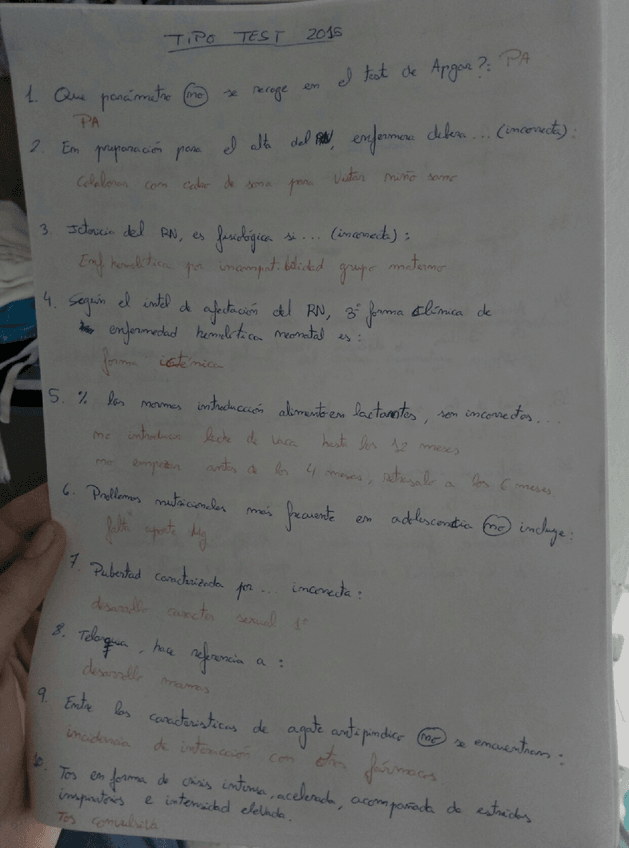 TIPO TEST 2015
1. Que parámetro no se recoge en el test de Apgar?: PA
PA
2. En preparación para el alta del RN, enfermera debera... (incorrecta):
Colaborar con de zona para visitar niño sano
3. Ictericia del RN, es fisiológica si... (incorrecta):
Enf hemolítica por incompatibilidad grupo materno
4. Según el nivel de afectación del RN, 3ª forma clínica de
enfermedad hemolítica neonatal es:
forma ictérica
5. % las normas introducción alimento en lactantes, son incorrectos...
no introducir leche de vaca hasta los 12 meses
no empezar antes de los 4 meses, retrasarlo a los 6 meses
6. Problemas nutricionales más frecuente en adolescencia no incluye:
falta aporte Mg
7. Pubertad caracterizada por... incorrecta:
desarrollo caracter sexual 1º
8. Telarquia, hace referencia a:
desarrollo mamas
9. Entre las caracteristicas de no se encuentran:
incidencia de interacción con otros fármacos
10. Tos en forma de crisis intensa, acelerada, acompañada de estridos
inspiratorios e intensidad elevada.
Tos convulsiva